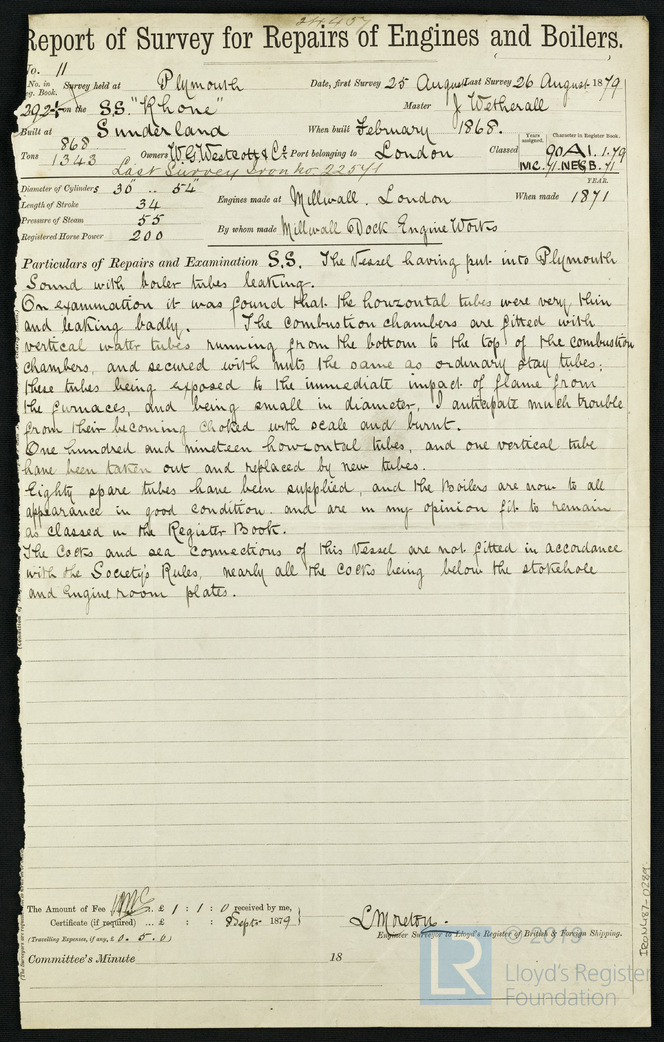 24457
Report of Survey for Repairs of Engines and Boilers.
No. 11
No. in Survey held at Plymouth Date, first Survey 25 August Last Survey 26 August 1879
Reg. Book.
292 on the S.S. "Rhone" Master J Wetherall
Built at Sunderland When built February 1868.
Years assigned. Character in Register Book.
Tons 868 1343 Owners W.G. Westcott & Co Port belonging to London Classed 90A1. 1.79
MC.71.NE&B.71
Last Survey Iron No. 22571
Diameter of Cylinders 30" .. 54" YEAR.
Length of Stroke 34 Engines made at Millwall. London When made 1871
Pressure of Steam 55
Registered Horse Power 200 By whom made Millwall Dock Engine Works
Particulars of Repairs and Examination S.S. The Vessel having put into Plymouth
Sound with boiler tubes leaking.
On examination it was found that the horizontal tubes were very thin
and leaking badly. The combustion chambers are fitted with
vertical water tubes running from the bottom to the top of the combustion
chambers, and secured with nuts the same as ordinary stay tubes;
these tubes being exposed to the immediate impact of flame from
the furnaces, and being small in diameter, I anticipate much trouble
from their becoming choked with scale and burnt.
One hundred and nineteen horizontal tubes, and one vertical tube
have been taken out and replaced by new tubes.
Eighty spare tubes have been supplied, and the Boilers are now to all
appearance in good condition. and are in my opinion fit to remain
as classed in the Register Book.
The Cocks and sea connections of this Vessel are not fitted in accordance
with the Society's Rules, nearly all the cocks being below the stokehole
and Engine room plates.
The Amount of Fee .. £ 1 : 1 : 0 received by me,
Certificate (if required) ... £ : : 8 Sept. 1879
(Travelling Expenses, if any, £ 0. 5. 0)
L Moreton.
Engineer Surveyor to Lloyd's Register of British & Foreign Shipping.
Committee's Minute 18
IRON487-0289
© 2019
LR
Lloyd's Register
Foundation